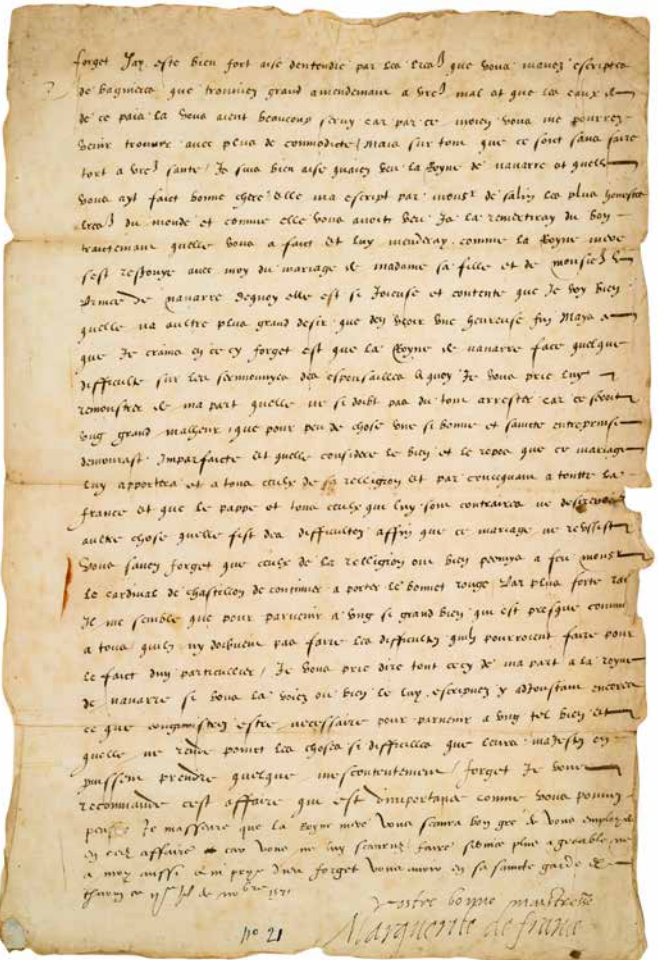 forget Jay este bien fort aise dentendre par les lres que vous mavez escriptes
de bagneres que trouviez grand amendemant a vre mal et que les eaux
de ce pais la vous aient beaucoup servy car par ce moien vous me pourrez
venir trouver avec plus de commodicte / Mais sur tout que ce soit sans faire
tort a vre sante / Je suis bien aise quaiez veu la Royne de navarre et quelle
vous ayt faict bonne chere elle ma escript par monsr de salin les plus honnestes
lres du monde et comme elle vous avoit veu Je la remertiray du bon
traitemant quelle vous a faict et luy menderay comme la Royne mere
sest resjouye avec moy du mariage de madame sa fille et de monsieur le
Prince de navarre dequoy elle est si Joieuse et contente que Je voy bien
quelle na aultre plus grand desir que den veoir une heureuse fin Mays
que Je crains en ce cy forget est que la Royne de navarre face quelque
difficulte sur les serimonyes des espousailles a quoy Je vous prie luy
remonstrer de ma part quelle ne si doibt pas du tout arrester car ce seroit
ung grand malheur que pour peu de chose une si bonne et saincte entreprinse
demourast Imparfaicte et quelle considere le bien et le repos que ce mariage
luy apportera et a tous ceulx de sa relligion et par consequant a toutte la
france et que le pappe et tous ceulx qui luy sont contraires ne desirent
aultre chose quelle fist des difficultez affin que ce mariage ne reussist
Vous savez forget que ceulx de la relligion ont bien permys a feu monsr
le cardinal de chastillon de continuer a porter le bonnet rouge Par plus forte
Il me semble que pour parvenir a ung si grand bien qui est presque commun
a tous quilz ny doibvent pas faire les difficultez quilz pourroient faire pour
le faict dun particullier / Je vous prie dire tout cecy de ma part a la royne
de navarre si vous la voiez ou bien le luy escripvez y adjoustant encores
ce que congnoistrez estre necessaire pour parvenir a ung tel bien et
quelle ne rende point les choses si difficilles que leurs majestez en
puissent prendre quelque mescontentement / forget Je vous
recommande cest affaire qui est dimportance comme vous pouvez
penser Je masseure que la Royne mere vous scaura bon gre de vous emploier
en cest affaire car vous ne luy scauriez faire service plus agreable ne
a moy aussi dieu forget vous avoir en sa saincte garde de
de 1571
Vostre bonne maistresse
Marguerite de france
no 21